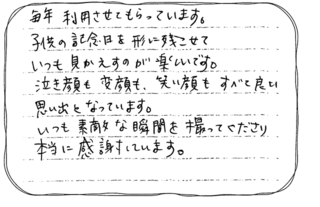 毎年 利用させてもらっています。
子供の記念日を形に残こせて
いつも見かえすのが楽しいです。
泣き顔も変顔も、笑い顔もすべて良い
思い出となっています。
いつも素敵な瞬間を撮ってくださり
本当に感謝しています。